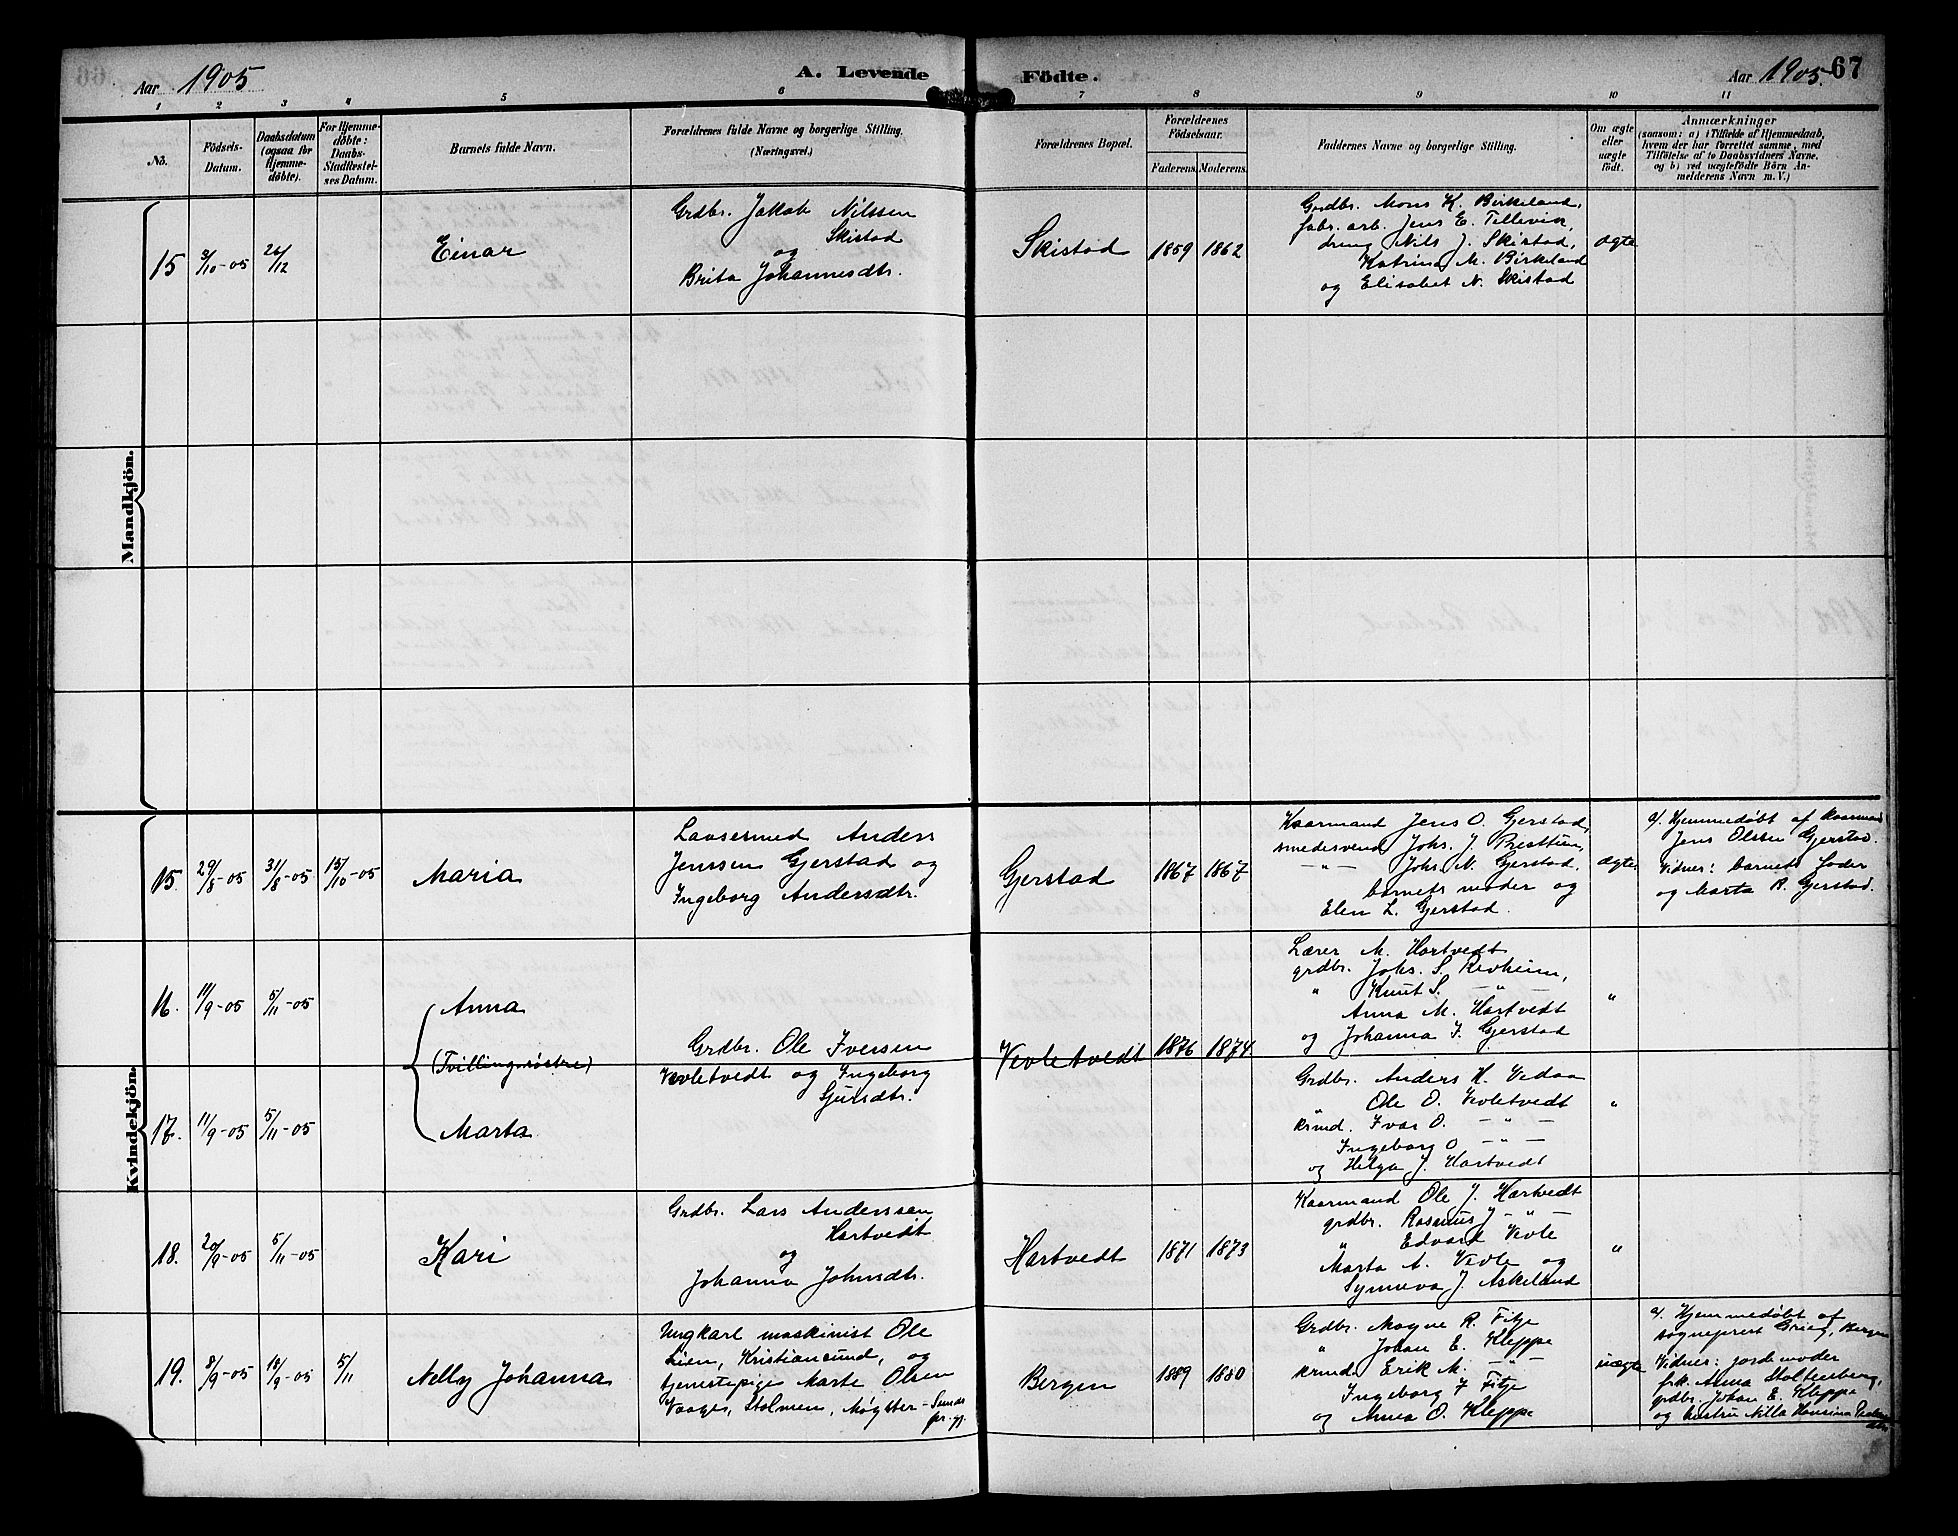 Aar 1905
A. Levende
Födte.
Aar 1905. 67
1 2 3 4 5 6 7 8 9 10 11
No.
Födsels-Datum.
Daabsdatum (ogsaa for Hjemme-døbte).
For Hjemme-døbte: Daabs-Stadfæstel-ses Datum.
Barnets fulde Navn.
Forældrenes fulde Navne og borgerlige Stilling.
(Næringsvei.)
Forældrenes Bopæl.
Forældrenes Födselsaar.
Faderens. Moderens.
Faddernes Navne og borgerlige Stilling.
Om ægte eller uægte födt.
Anmærkninger
(saasom: a) i Tilfælde af Hjemmedaab,
hvem der har forrettet samme, med
Tilföielse af to Daabsvidners Navne,
og b) ved uægtefödte Börn An-
melderens Navn m. V.)
Mandkjön.
15 3/10-05 26/12
Einar
Grdbr. Jakob Nilssen
Skistad
og
Brita Johannesdtr.
Skistad
1859 1862
Grdbr. Mons K. Birkeland,
fabr. arb. Jens E. Tellevik
dreng Nils J. Skistad,
Katrina M. Birkeland
og Elisabet N. Skistad
ægte
Kvindekjön.
15. 29/8-05 31/8-05 15/10-05
Maria
Laasesmed Anders
Jenssen Gjerstad og
Ingeborg Andersdtr.
Gjerstad
1867 1867
Kaarmand Jens O. Gjerstad,
smedesvend Johs. J.
-"- Johs N. Gjerstad,
barnets moder og
Elen L. Gjerstad.
ægte.
a/. Hjemmedøbt af Kaarmand
Jens Olssen Gjerstad.
Vidner: barnets fader
og Marta R. Gjerstad.
16. 11/9-05 5/11-05
Anna
(Tvillingsøstre)
Grdbr. Ole Iversen
Vevletvedt og Ingeborg
Sjursdtr.
Vevletvedt
1876 1874
Lærer M. Hartvedt
grdbr. Johs. S. Revheim,
" Knut S. -"-
Anna M. Hartvedt
og Johanna I. Gjerstad
"
17. 11/9-05 5/11-05
Marta
Grdbr. Anders H. Vedaa
" Ole O. Vevletvedt
krmd. Ivar O. -"-
Ingeborg O -"-
og Helga J. Hartvedt
"
18. 20/9-05 5/11-05
Kari
Grdbr. Lars Anderssen
Hartvedt
og
Johanna Johnsdtr.
Hartvedt
1871 1873
Kaarmand Ole J. Hartvedt
grdbr. Rasmus J -"-
" Edvard Vevle
Marta A. Vevle og
Synneva J. Askeland
"
19. 8/9-05 10/9-05 5/11
Nelly Johanna
Ungkarl maskinist Ole
Lien, Kristiansund, og
tjenestepige Marte Olsen
Vaage, Stolmen, Møgster-Sunds
pr.gj.
Bergen
1889 1880
Grdbr. Magne R. Fitje
" Johan E. Kleppe
krmd. Erik M. -"-
Ingeborg I Fitje
og Anna O. Kleppe
uægte
a/. Hjemmedøbt af
sogneprest Grieg, Bergen
Vidner: jordemoder
frk. Anna Stoltenberg,
grdbr. Johan E. Kleppe
og hustru Nilla Hansina